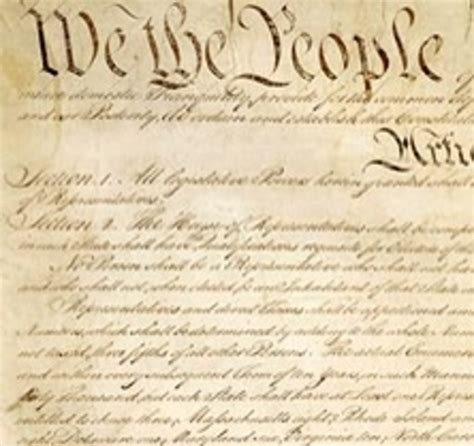 We the People
insure domestic Tranquility, provide for the common
and our Posterity, do ordain and establish this Constitu
Artic
Section. 1. All legislative Powers herein granted shall
of Representatives.
Section. 2. The House of Representatives shall be comp
in each State shall have Qualifications requisite for Electors of the
No Person shall be a Representative who shall not ha
and who shall not, when elected, be an Inhabitant of that State
Representatives and direct Taxes shall be apportioned am
Numbers, which shall be determined by adding to the whole Num
not taxed, three fifths of all other Persons. The actual Enumera
and within every subsequent Term of ten Years, in such Mann
thirty Thousand, but each State shall have at Least one Rep
entitled to chuse three, Massachusetts eight, Rhode Island an
eight, Delaware one, Maryland six, Virginia ten, North Caro